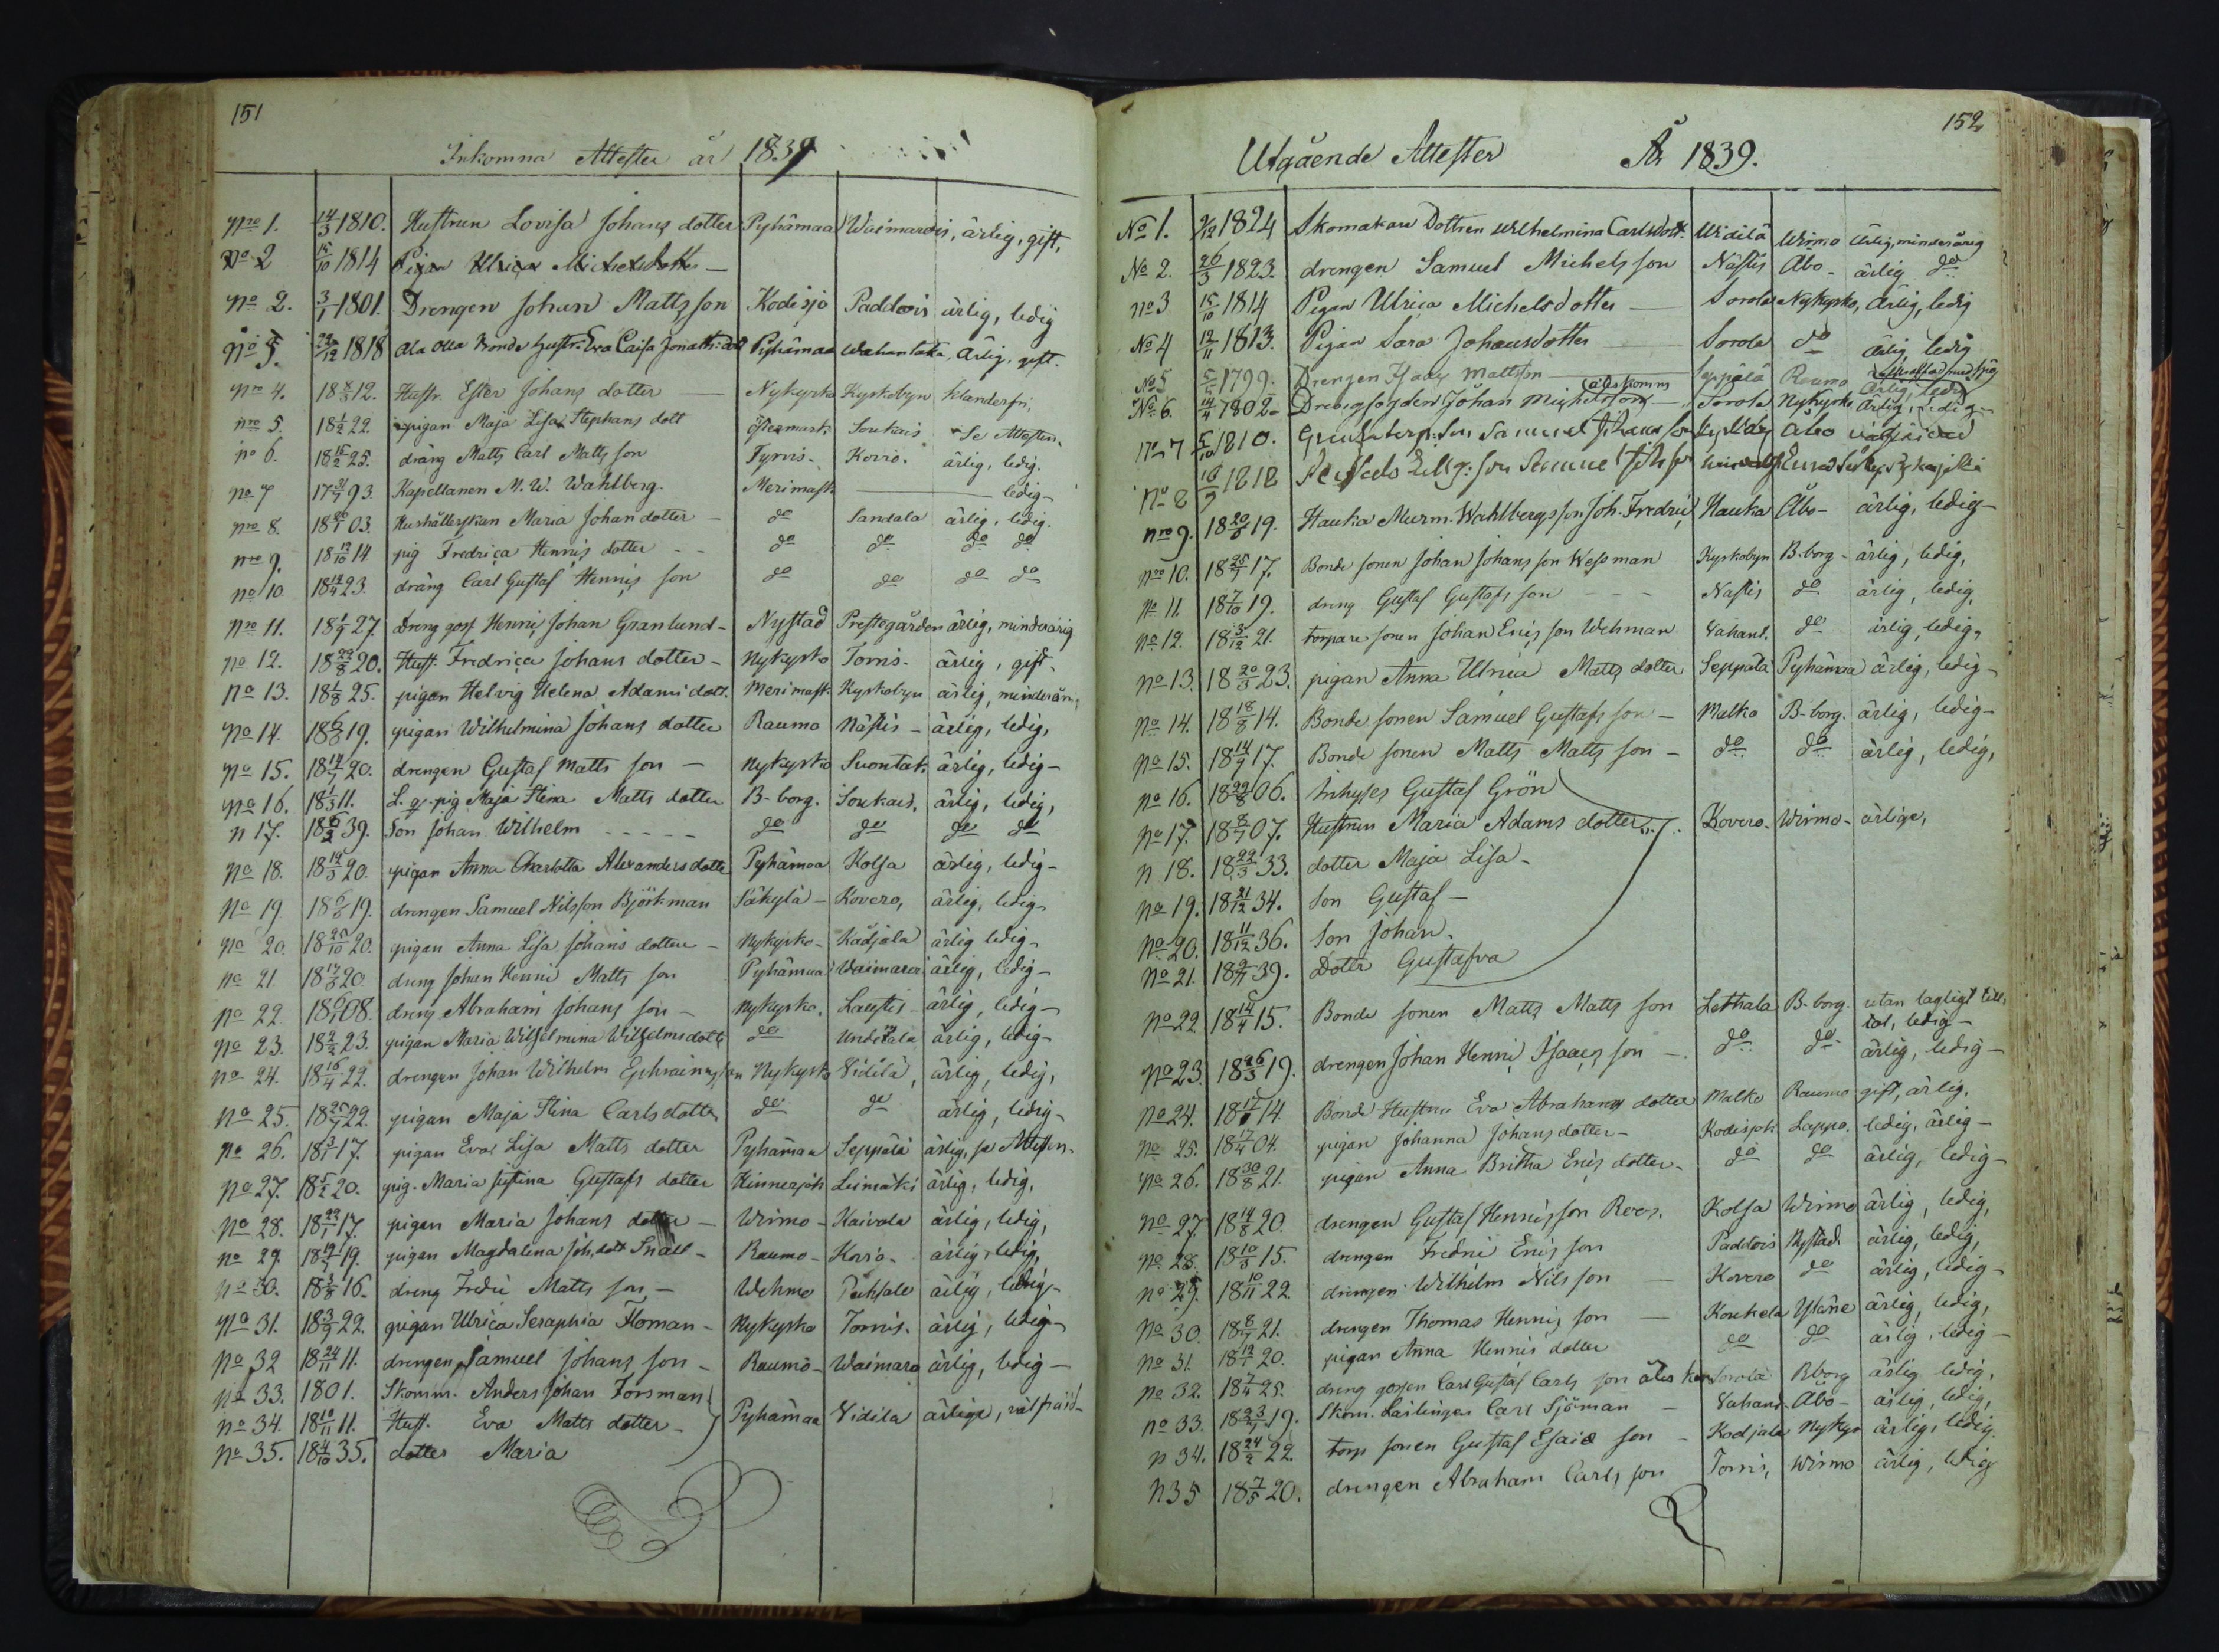 151
Inkomna Attester år 1839
Nro 1. 14/3 1810. Hustrun Lovisa Johans dotter Pyhämaa Waimarois, ärlig, gift,
No 2 15/10 1814 Pigan Ulrica Michelsdotter —
No 2. 3/1 1801. Drengen Johan Matts son Kodisjo Paddois ärlig, ledig
No 3. 1818 Hustr. Eva Caisa Jonath: dott Pyhämaa Wahantaka, Ärlig, gift.
Nro 4. 18 8/3 12. Hustr. Ester Johans dotter — Nykyrko Kyrkobyn klanderfri,
nro 5. 18 1/2 22. pigan Maja Lisa Stephans dott Östermark Soukais Se Attesten.
no 6. 18 15/2 25. dräng Matts Carl Matts son Tyrvis. Kovio. ärlig, ledig.
No 7 17 31/7 93. Kapellanen M. W. Wahlberg. Merimask — ledig —
nro 8. 18 20/1 03. Hushållerskan Maria Johan dotter — do Sandala ärlig, ledig.
nro 9. 18 19/10 14 pig Fredrica Henrics dotter - - do do do do
no 10 18 12/4 23. dräng Carl Gustaf Henrics son do do do do
Nro 11. 18 1/9 27. Dreng goss Henric Johan Granlund — Nystad Prestegården ärlig, minderårig
No 12. 18 22/8 20. Hust. Fredrica Johans dotter — Nykyrko Torris. ärlig, gift.
No 13. 18 1/8 25. pigan Helvig Helena Adams dott. Merimask Kyrkobyn ärlig, minderårig
No 14. 18 6/8 19. pigan Wilhelmina Johans dotter Raumo Nästis — ärlig, ledig,
No 15. 18 14/7 20. drengen Gustaf Matts son — Nykyrko Suontak. ärlig, ledig —
No 16. 18 1/3 11. L. q. pig Maja Stina Matts dotter B-borg. Soukais, ärlig, ledig,
n 17. 18 6/2 39. Son Johan Wilhelm - - - - - do do do do
No 18. 18 14/5 20. pigan Anna Charlotta Alexanders dotter Pyhämaa Kolsa ärlig, ledig —
No 19. 18 6/8 19. drengen Samuel Nilsson Björkman Säkylä — Kovero, ärlig, ledig —
No 20. 18 25/10 20. pigan Anna Lisa Johans dotter — Nykyrko — Kodjala ärlig ledig —
No 21. 18 17/8 20. dreng Johan Henric Matts son Pyhämaa Waimaro ärlig, ledig —
No 22. 18 6/1 08. dreng Abraham Johans son — Nykyrko. Laustis — ärlig, ledig —
No 23. 18 2/2 23. pigan Maria Wilhelmina Wilhelmsdotter do Undetala ärlig, ledig —
No 24. 18 16/4 22. drengen Johan Wilhelm Ephraims son Nykyrko Vidila, ärlig, ledig,
No 25. 18 25/7 22. pigan Maja Stina Carls dotter do do ärlig, ledig —
No 26. 18 3/1 17. pigan Eva Lisa Matts dotter Pyhämaa Seppälä ärlig, se Attesten.
No 27. 18 5/2 20. pig. Maria Justina Gustafs dotter Hinnerjok Leimäki ärlig, ledig,
No 28. 18 22/1 17. pigan Maria Johans dotter — Wirmo — Kaivola ärlig, ledig,
No 29. 18 19/7 19. pigan Magdalena Joh. dott Snäll — Raumo — Kovio. ärlig, ledig,
No 30. 18 3/8 16. dreng Fredric Matts son — Wehmo Puksalo ärlig, ledig —
No 31. 18 3/9 22. pigan Ulrica Seraphia Homan — Nykyrko Torris. ärlig, ledig —
No 32 18 24/11 11. drengen Samuel Johans son — Raumo — Waimaro ärlig, ledig —
No 33. 1801. Skomm. Anders Johan Forsman
No 34. 18 10/11 11. Hust. Eva Matts dotter — Pyhämaa Vidila ärlige, välfräjd —
No 35. 18 4/10 35. dotter Maria
152
Utgående Attester År 1839.
No 1. 9/12 1824 Skomakare Dottren Wilhelmina Carlsdott. Widilä Wirmo Ärlig, minderårig
No 2. 26/3 1823. drengen Samuel Michels son Nästis Åbo — ärlig do
No 3 15/10 1814 Pigan Ulrica Michelsdotter — Sorola Nykyrko, Ärlig, ledig
No 4 12/11 1813. Pigan Sara Johansdotter Sorola do ärlig, ledig
No 5 1799. Drengen Isaac Mattsson — Seppälä Raumo Ärlig, ledig
No 6. 14/4 1802. Johan Michelsson — Sorola Nykyrko Ärlig, ledig —
No 7 5/10 1810. Samuel Johansson Åbo
No 8 16/9 1818 son Samuel Eura
nro 9. 18 20/8 19. Hauka Murm. Wahlbergs son Joh. Fredric Hauka Åbo — ärlig, ledig —
Nro 10. 18 25/7 17. Bonde sonen Johan Johans son Wessman Kyrkobyn B-borg — ärlig, ledig,
No 11. 18 7/10 19. dreng Gustaf Gustafs son — — Nästis do ärlig, ledig,
No 12. 18 3/12 21. torpare sonen Johan Erics son Wehman Vahant. do ärlig, ledig,
No 13. 18 20/3 23. pigan Anna Ulrica Matts dotter Seppälä Pyhämaa ärlig, ledig —
No 14. 18 18/8 14. Bonde sonen Samuel Gustafs son — Malko B-borg. ärlig, ledig —
No 15. 18 14/9 17. Bonde sonen Matts Matts son — do do ärlig, ledig,
No 16. 18 22/8 06. Inhyses Gustaf Grön
No 17. 18 8/7 07. Hustrun Maria Adams dotter Kovero — Wirmo — ärlige,
n 18. 18 22/3 33. dotter Maja Lisa —
No 19. 18 21/12 34. Son Gustaf —
No 20. 18 11/12 36. Son Johan.
No 21. 18 9/7 39. Doter Gustafva
No 22 18 14/4 15. Bonde sonen Matts Matts son Lethala B-borg. utan lagligt till
tal, ledig —
No 23. 18 26/3 19. drengen Johan Henric Isaacs son — do do ärlig, ledig —
No 24. 18 17/8 14. Bonde Hustru Eva Abrahams dotter Malko Raumo gift, ärlig.
No 25. 18 17/4 04. pigan Johanna Johans dotter — Kodisjok Lappo, ledig, ärlig —
No 26. 18 30/8 21. pigan Anna Britha Erics dotter — do do ärlig, ledig —
No 27. 18 14/8 20. drengen Gustaf Henrics son Roos. Kolsa Wirmo ärlig, ledig,
No 28. 18 10/3 15. drengen Fredric Erics son Paddois Nystad ärlig, ledig,
No 29. 18 10/11 22. drengen Wilhelm Nils son — Kovero do ärlig, ledig —
No 30. 18 8/7 21. drengen Thomas Henrics son — Koukela Yläne ärlig, ledig,
No 31. 18 19/1 20. pigan Anna Henrics dotter do do ärlig, ledig —
No 32. 18 7/4 25. dreng gossen Carl Gustaf Carls son Sorola Bborg ärlig ledig,
No 33. 18 23/4 19. Skom. Lärlingen Carl Sjöman — Vahand. Åbo — ärlig, ledig,
n 34. 18 24/2 22. torp sonen Gustaf Esaie son — Kodjala Nykyr ärlig, ledig.
N 35 18 7/5 20. drengen Abraham Carls son Torris, Wirmo ärlig, ledig